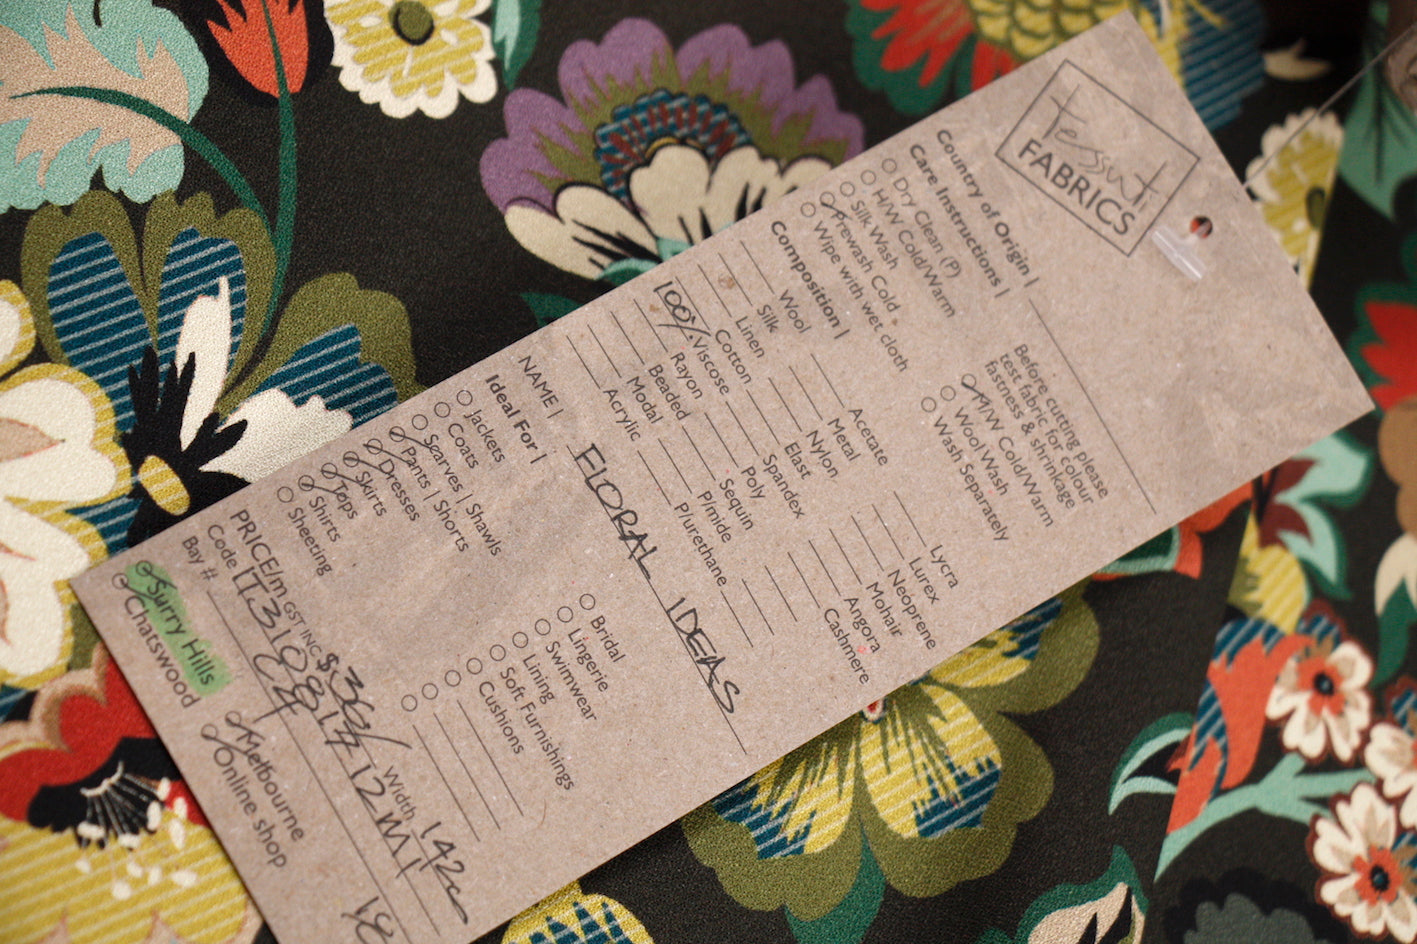 Tessuti
FABRICS
Country of Origin |
Care Instructions |
Dry Clean (P)
H/W Cold/Warm
Silk Wash
Prewash Cold
Wipe with wet cloth
Before cutting please
test fabric for colour
fastness & shrinkage
M/W Cold/Warm
Wool Wash
Wash Separately
Composition |
Wool
Silk
Linen
Cotton
100% Viscose
Rayon
Beaded
Modal
Acrylic
Acetate
Metal
Nylon
Elast
Spandex
Poly
Sequin
P/mide
P/urethane
Lycra
Lurex
Neoprene
Mohair
Angora
Cashmere
NAME | FLORAL IDEAS
Ideal For |
Jackets
Coats
Scarves | Shawls
Pants | Shorts
Dresses
Skirts
Tops
Shirts
Sheeting
Bridal
Lingerie
Swimwear
Lining
Soft Furnishings
Cushions
PRICE/m GST INC $36/ Width 142c
Code
Bay #
Surry Hills
Chatswood
Melbourne
Online shop